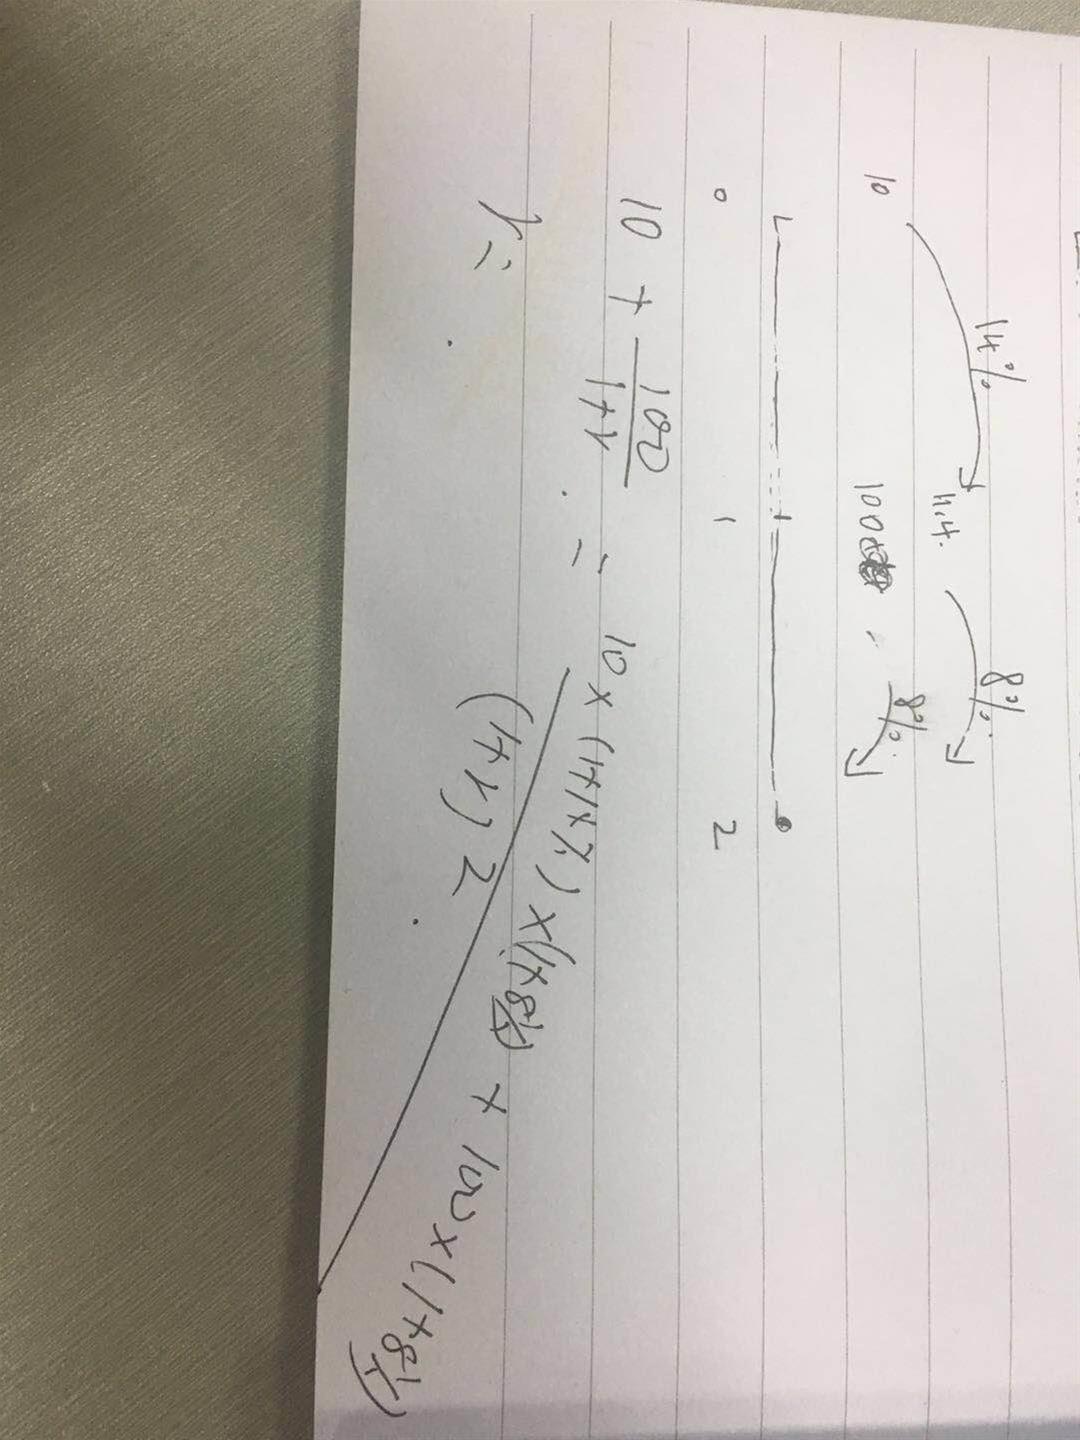 14% 8%
10 11.4.
100 8%.
0 1 2
10 + 100/(1+r) = 10 x (1+14%) x (1+8%) + 100 x (1+8%)
(1+r)^2
r =